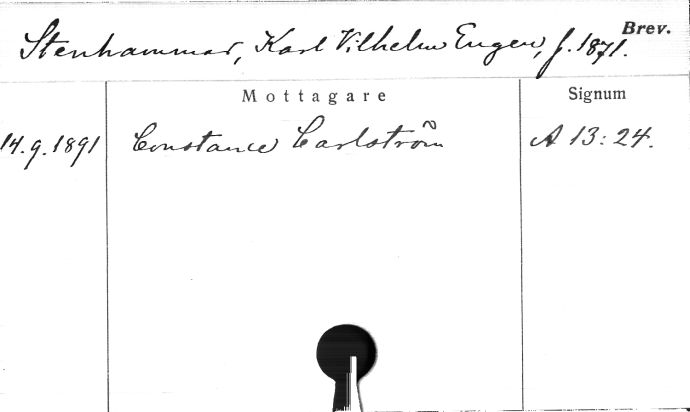 Stenhammar, Karl Vilhelm Eugen, f. 1871. Brev.
Mottagare Signum
14.9.1891 Constance Carlström A 13:24.